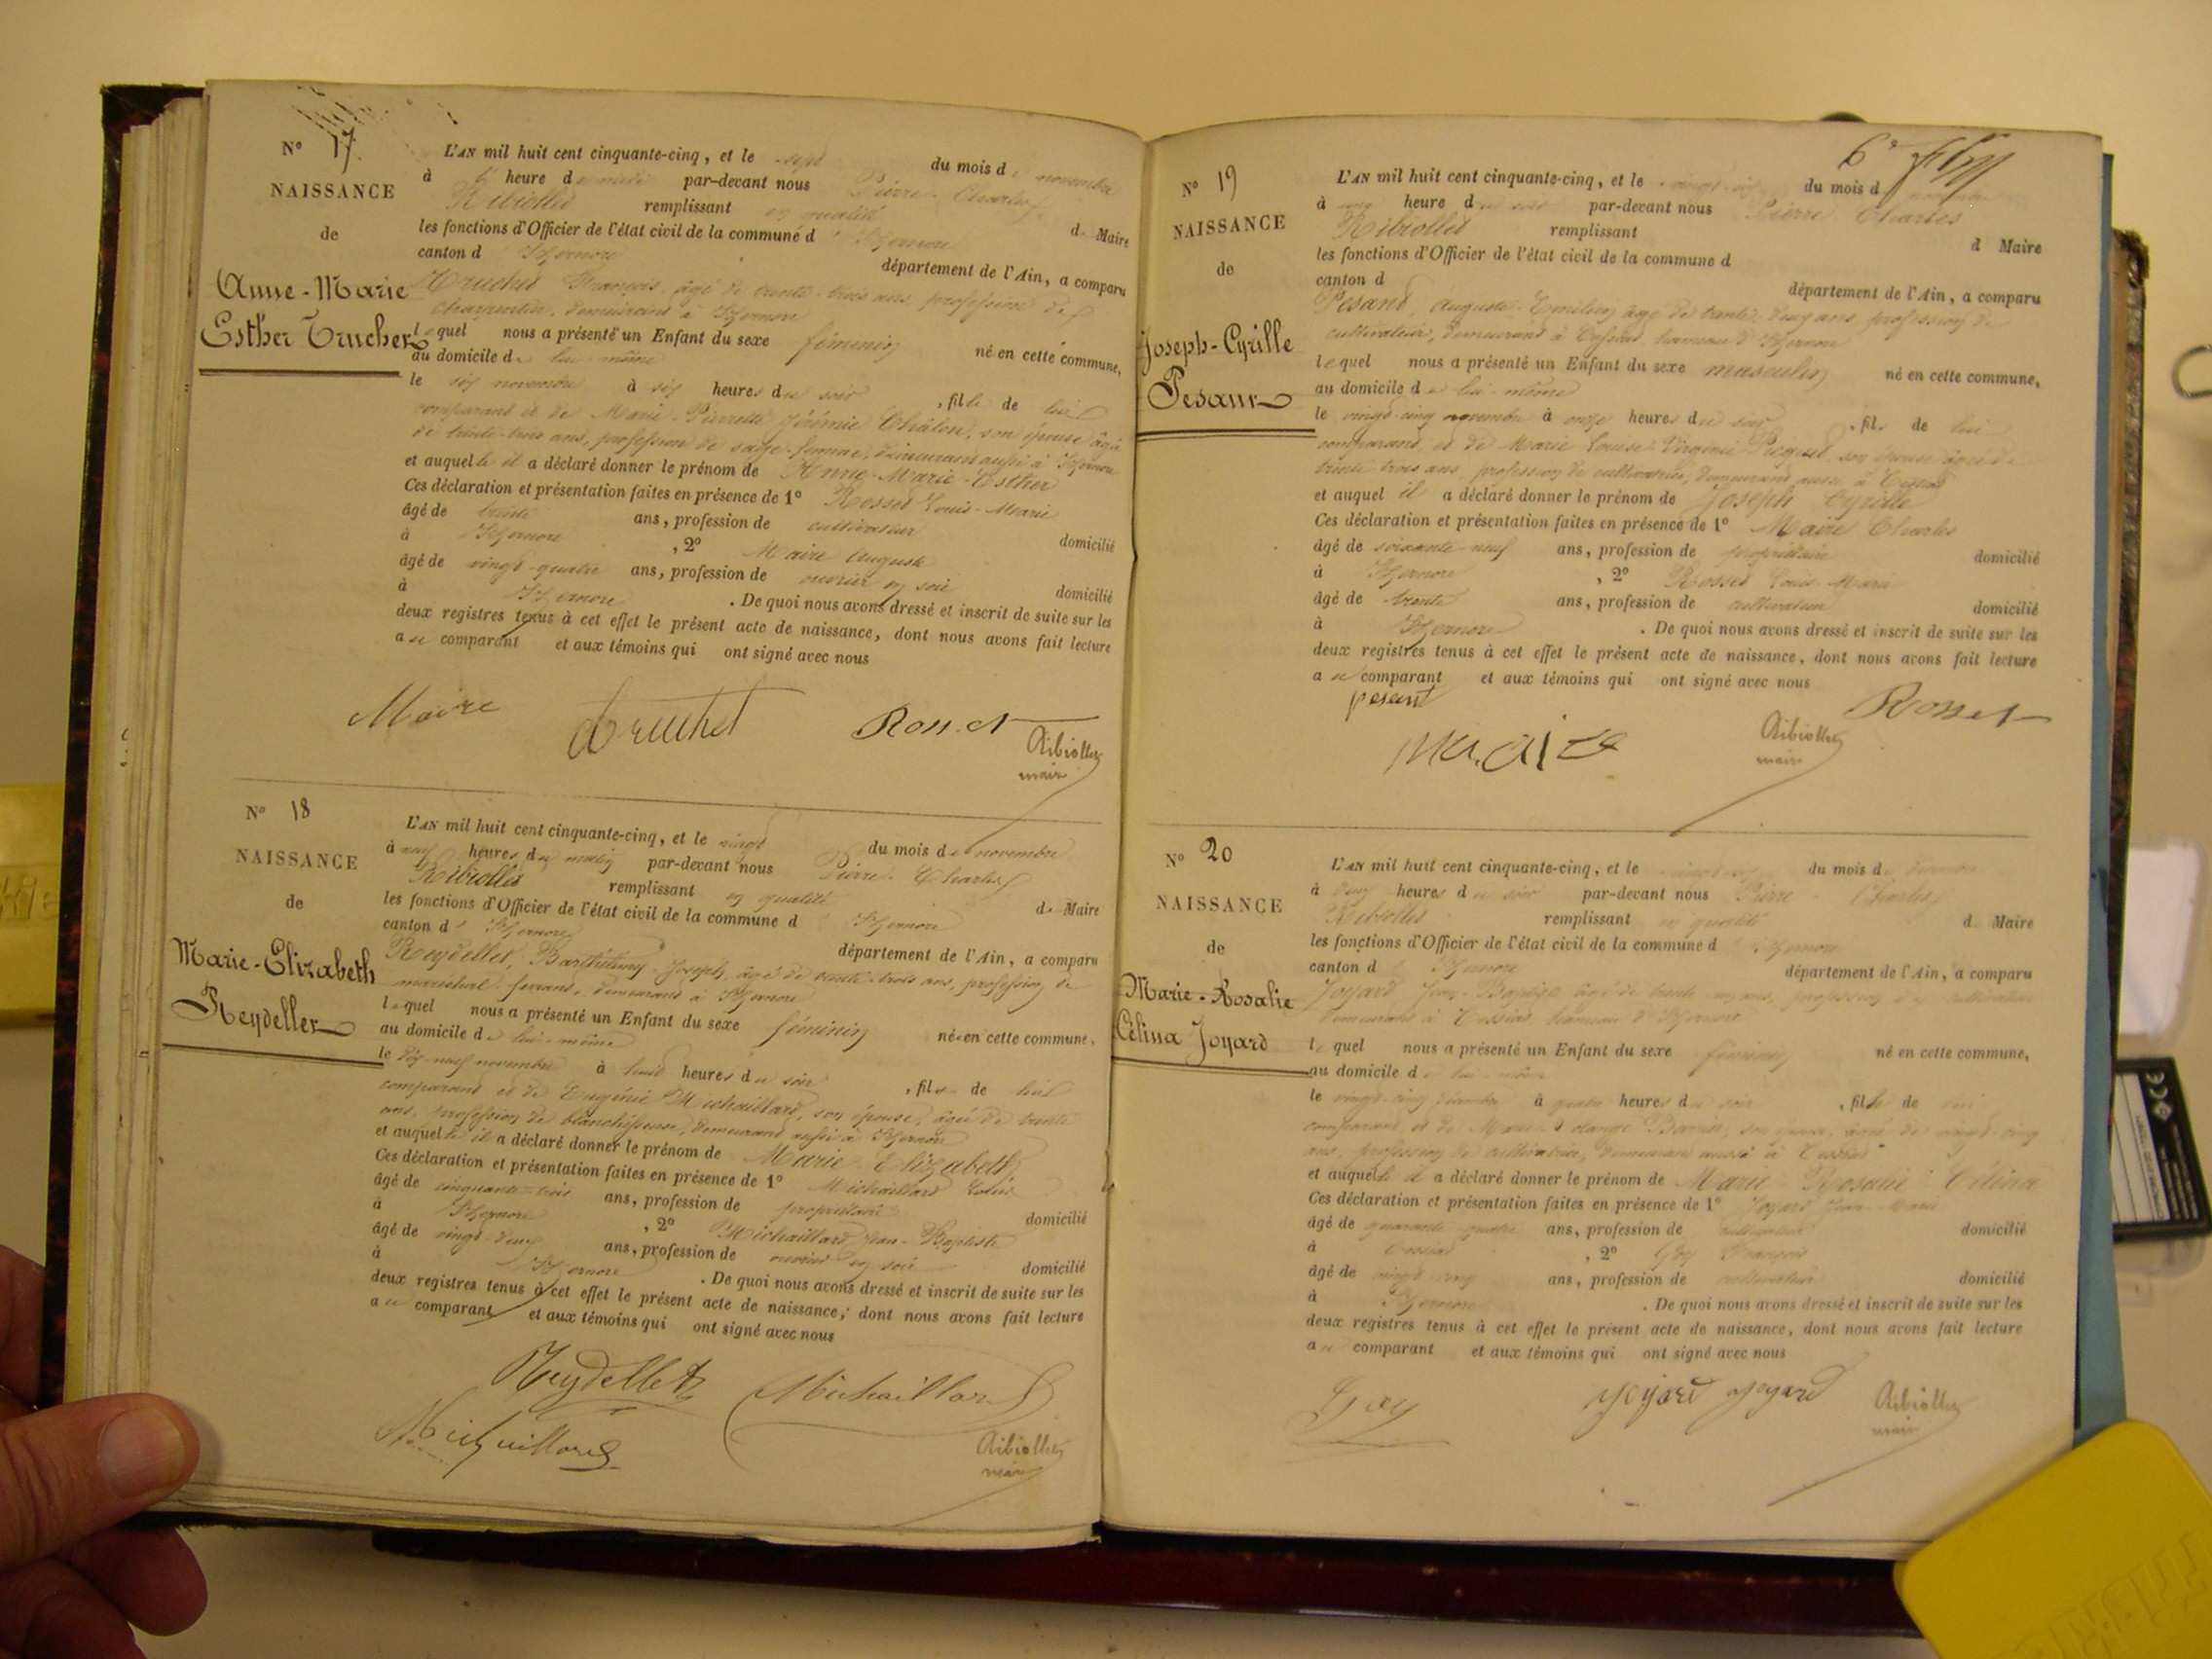 N° 17
NAISSANCE
de
Anne-Marie
Esther Truchet
L'AN mil huit cent cinquante-cinq, et le sept du mois de novembre
à heure de midi par-devant nous Pierre-Charles
Ribiollet remplissant en qualité de Maire
les fonctions d'Officier de l'état civil de la commune d'Izernore
canton d'Izernore département de l'Ain, a comparu
Truchet François, âgé de trente-trois ans, profession de
charpentier, demeurant à Izernore
lequel nous a présenté un Enfant du sexe féminin né en cette commune,
au domicile de lui-même
le six novembre à six heures du soir, fille de lui
comparant et de Marie-Pierrette Jérémie Châlon, son épouse âgée
de trente-trois ans, profession de sage-femme, demeurant aussi à Izernore
et auquelle il a déclaré donner le prénom de Anne-Marie-Esther
Ces déclaration et présentation faites en présence de 1° Rosset Louis-Marie
âgé de trente ans, profession de cultivateur domicilié
à Izernore, 2° Maire Auguste
âgé de vingt-quatre ans, profession de ouvrier en soie domicilié
à Izernore. De quoi nous avons dressé et inscrit de suite sur les
deux registres tenus à cet effet le présent acte de naissance, dont nous avons fait lecture
au comparant et aux témoins qui ont signé avec nous
Maire Truchet Rosset
Ribiollet
maire
N° 18
NAISSANCE
de
Marie-Elizabeth
Reydellet
L'AN mil huit cent cinquante-cinq, et le vingt du mois de novembre
à neuf heures du matin par-devant nous Pierre-Charles
Ribiollet remplissant en qualité de Maire
les fonctions d'Officier de l'état civil de la commune d'Izernore
canton d'Izernore département de l'Ain, a comparu
Reydellet, Barthélemy-Joseph, âgé de trente-trois ans, profession de
maréchal ferrant, demeurant à Izernore
lequel nous a présenté un Enfant du sexe féminin née en cette commune,
au domicile de lui-même
le dix-neuf novembre à heures du soir, fille de lui
comparant et de Eugénie Michaillard, son épouse, âgée de trente
ans, profession de blanchisseuse, demeurant aussi à Izernore
et auquelle il a déclaré donner le prénom de Marie-Elizabeth
Ces déclaration et présentation faites en présence de 1° Michaillard Louis
âgé de cinquante-trois ans, profession de propriétaire domicilié
à Izernore, 2° Michaillard Jean-Baptiste
âgé de vingt-deux ans, profession de ouvrier en soie domicilié
à Izernore. De quoi nous avons dressé et inscrit de suite sur les
deux registres tenus à cet effet le présent acte de naissance, dont nous avons fait lecture
au comparant et aux témoins qui ont signé avec nous
Reydellet Michaillard
Michaillard
Ribiollet
maire
N° 19
NAISSANCE
de
Joseph-Cyrille
Pesant
L'AN mil huit cent cinquante-cinq, et le vingt-six du mois d
à une heure du soir par-devant nous Pierre Charles
Ribiollet remplissant d Maire
les fonctions d'Officier de l'état civil de la commune d
canton d département de l'Ain, a comparu
Pesant, Auguste-Emilien âgé de trente-deux ans profession de
cultivateur, demeurant à hameau d'Izernore
lequel nous a présenté un Enfant du sexe masculin né en cette commune,
au domicile de lui-même
le vingt-cinq novembre à onze heures du soir, fils de lui
comparant, et de Marie Louise-Virginie son épouse âgée de
trente trois ans, profession de cultivatrice, demeurant aussi à
et auquel il a déclaré donner le prénom de Joseph Cyrille
Ces déclaration et présentation faites en présence de 1° Maire Charles
âgé de soixante-neuf ans, profession de propriétaire domicilié
à Izernore, 2° Rosset Louis-Marie
âgé de trente ans, profession de cultivateur domicilié
à Izernore. De quoi nous avons dressé et inscrit de suite sur les
deux registres tenus à cet effet le présent acte de naissance, dont nous avons fait lecture
au comparant et aux témoins qui ont signé avec nous
pesant Rosset
maire Ribiollet
maire
N° 20
NAISSANCE
de
Marie-Rosalie
Célina Joyard
L'AN mil huit cent cinquante-cinq, et le du mois de
à deux heures du soir par-devant nous Pierre-Charles
Ribiollet remplissant en qualité de Maire
les fonctions d'Officier de l'état civil de la commune d'Izernore
canton d'Izernore département de l'Ain, a comparu
Joyard Jean-Baptiste âgé de trente ans, profession de cultivateur
demeurant à Tessiat hameau d'Izernore
lequel nous a présenté un Enfant du sexe féminin né en cette commune,
au domicile de lui-même
le vingt-cinq décembre à quatre heures du soir, fille de lui
comparant, et de Marie son épouse, âgée de vingt-cinq
ans, profession de cultivatrice, demeurant aussi à Tessiat
et auquelle il a déclaré donner le prénom de Marie Rosalie Célina
Ces déclaration et présentation faites en présence de 1° Joyard Jean-Marie
âgé de quarante-quatre ans, profession de cultivateur domicilié
à Tessiat, 2° Gay François
âgé de vingt-cinq ans, profession de cultivateur domicilié
à Izernore. De quoi nous avons dressé et inscrit de suite sur les
deux registres tenus à cet effet le présent acte de naissance, dont nous avons fait lecture
au comparant et aux témoins qui ont signé avec nous
Gay joyard joyard Ribiollet
maire